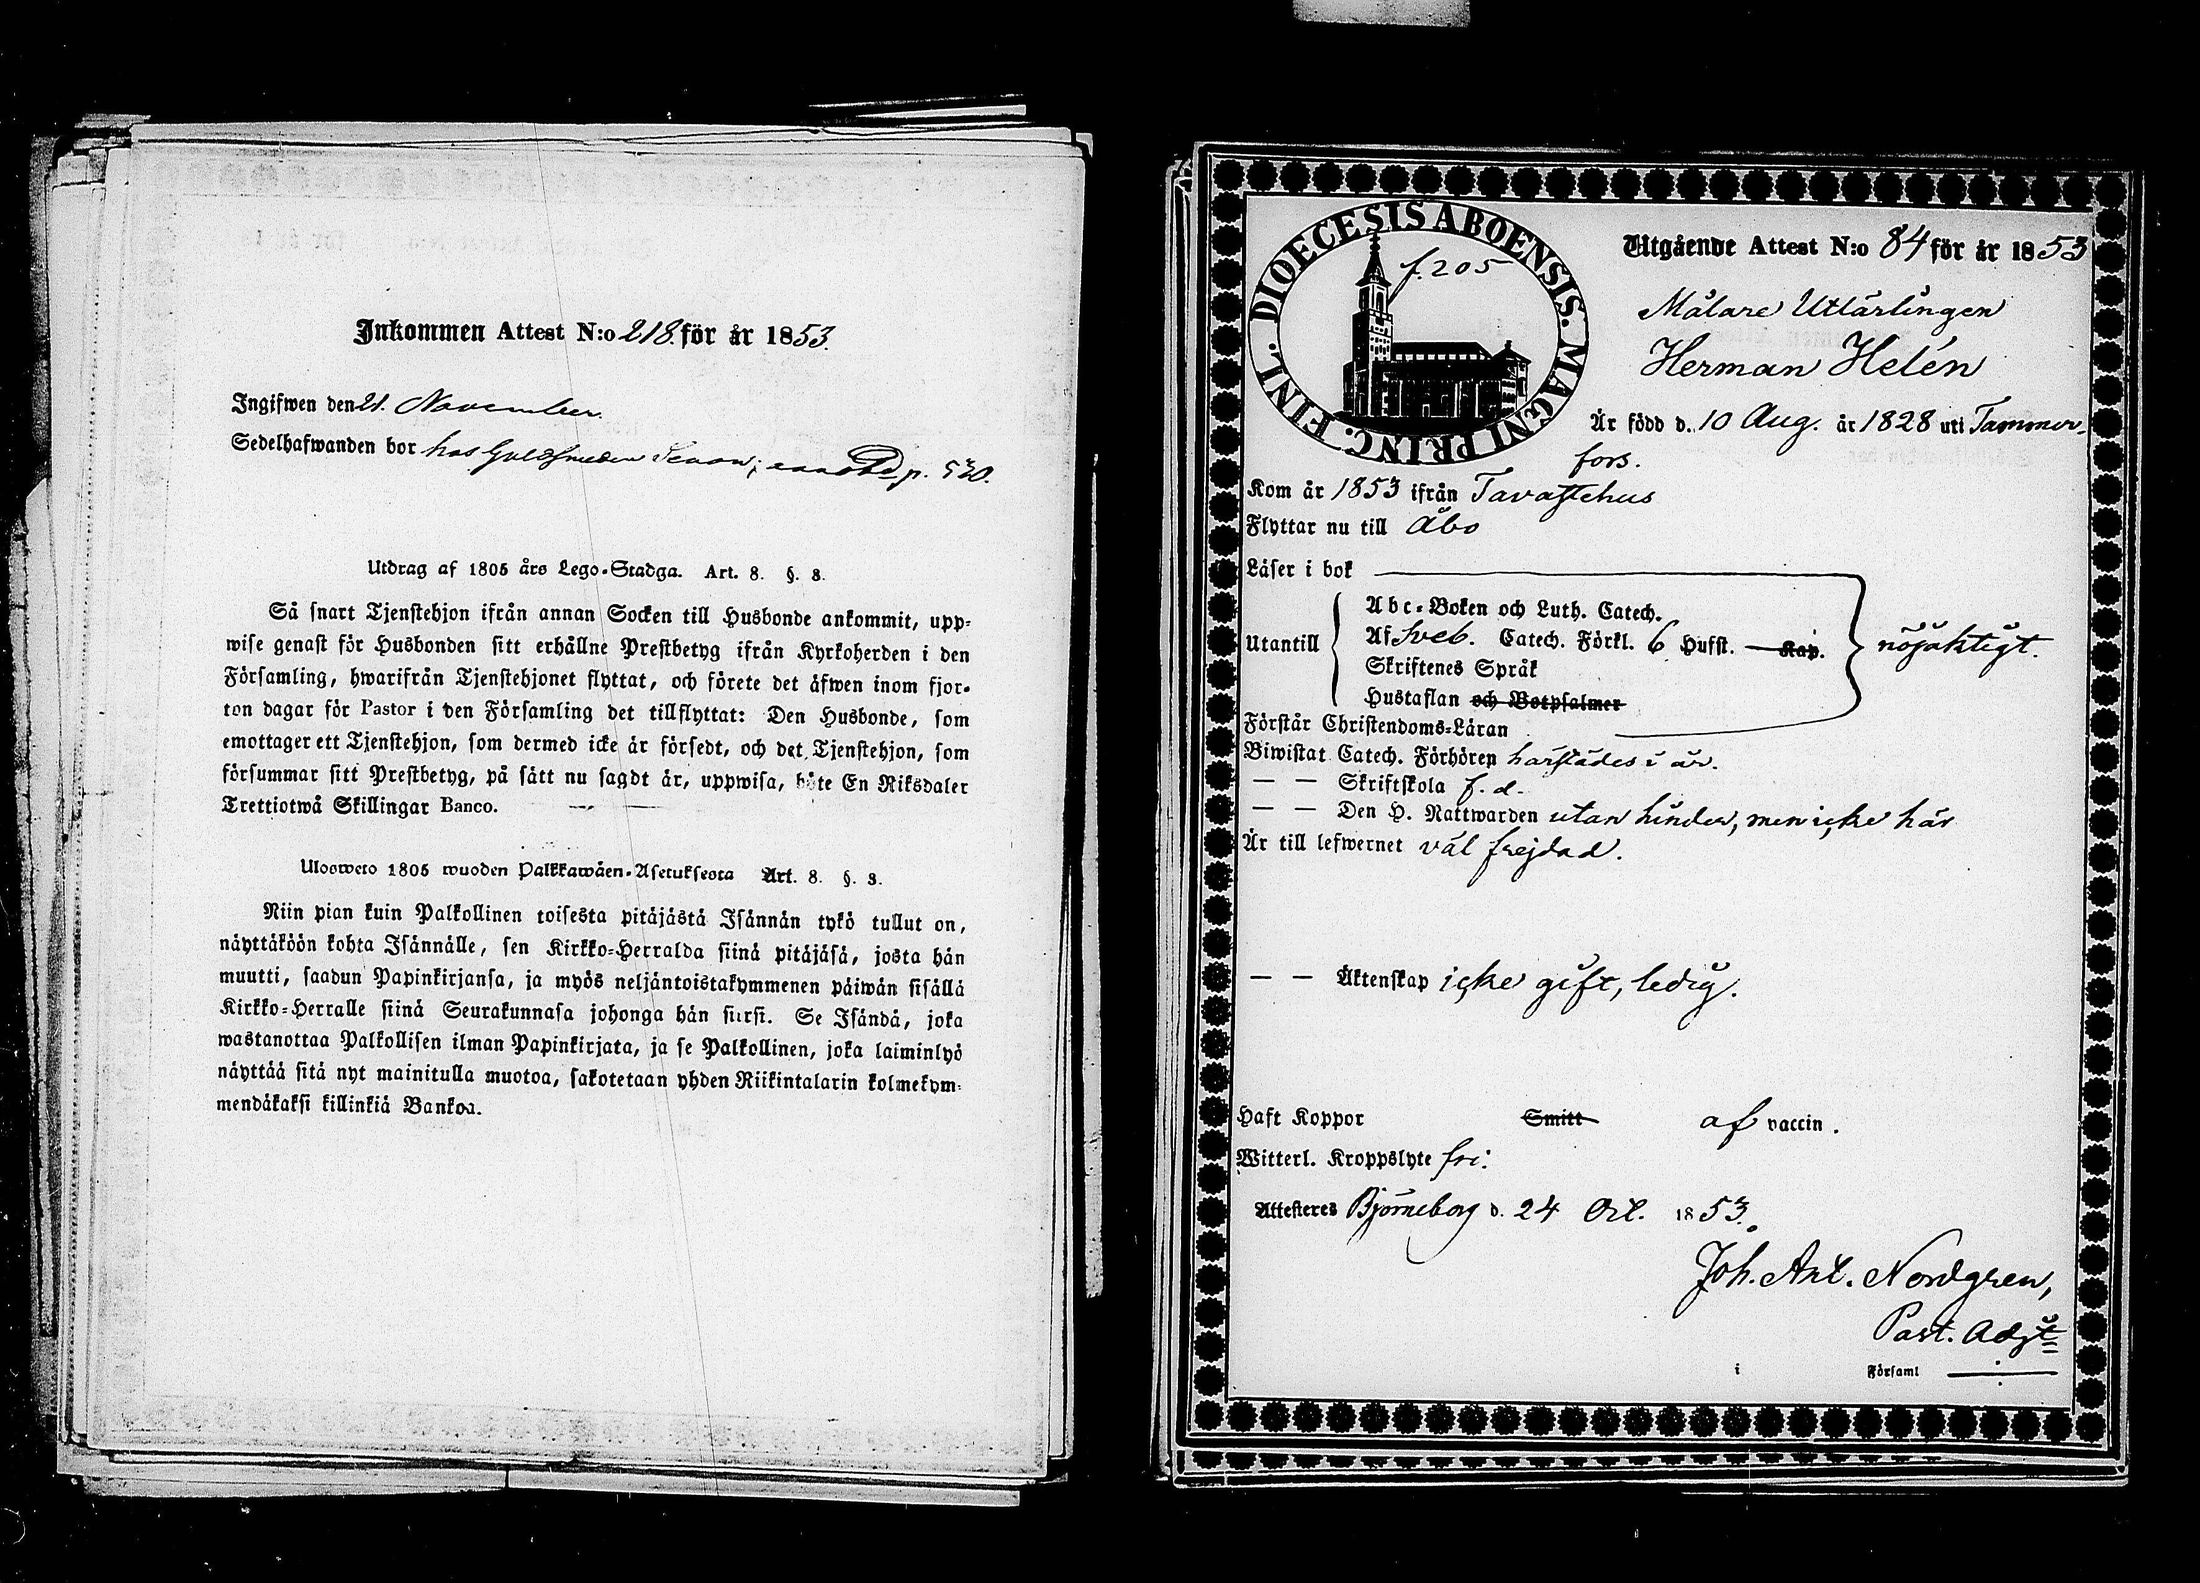 Inkommen Attest N:o 218. för år 1853.
Ingifwen den 21. November.
Sedelhafwanden bor hos Guldsmeden p. 520.
Utdrag af 1805 års Lego-Stadga. Art. 8. §. 8.
Så snart Tjenstehjon ifrån annan Socken till Husbonde ankommit, upp-
wise genast för Husbonden sitt erhållne Prestbetyg ifrån Kyrkoherden i den
Församling, hwarifrån Tjenstehjonet flyttat, och förete det äfwen inom fjor-
ton dagar för Pastor i den Församling det tillflyttat: Den Husbonde, som
emottager ett Tjenstehjon, som dermed icke är försedt, och det Tjenstehjon, som
försummar sitt Prestbetyg, på sätt nu sagdt är, uppwisa, böte En Riksdaler
Trettiotwå Skillingar Banco.
Ulosweto 1805 wuoden Palkkawäen-Asetuksesta Art. 8. §. 8.
Niin pian kuin Palkollinen toisesta pitäjästä Isännän tykö tullut on,
näyttäköön kohta Isännälle, sen Kirkko-Herralda siinä pitäjäsä, josta hän
muutti, saadun Papinkirjansa, ja myös neljäntoistakymmenen päiwän sisällä
Kirkko-Herralle siinä Seurakunnasa johonga hän siirsi. Se Isändä, joka
wastanottaa Palkollisen ilman Papinkirjata, ja se Palkollinen, joka laiminlyö
näyttää sitä nyt mainitulla muotoa, sakotetaan yhden Riikintalarin kolmekym-
mendäkaksi killinkiä Bankoa.
DIOECESIS ABOENSIS. MAGNI PRINC. FINL.
f. 205
Utgående Attest N:o 84 för år 1853
Målare Utlärlingen
Herman Helén
Är född d. 10 Aug. år 1828 uti Tammer-
fors.
Kom år 1853 ifrån Tavastehus
Flyttar nu till Åbo
Läser i bok
Abc-Boken och Luth. Catech.
Utantill Af Sveb. Catech. Förkl. 6 Hufst. — Kap. nöjaktigt.
Skriftenes Språk
Hustaflan och Botpsalmer
Förstår Christendoms-Läran
Biwistat Catech. Förhören härstädes i år.
— — Skriftskola f. d.
— — Den H. Nattwarden utan hinder, men icke här
Är till lefwernet väl frejdad.
— — Äktenskap icke gift, ledig.
Haft Koppor Smitt af vaccin.
Witterl. Kroppslyte fri.
Attesteres Björneborg d. 24 Oct. 1853.
Joh. Ant. Nordgren,
Past. Adj:t
i Församl